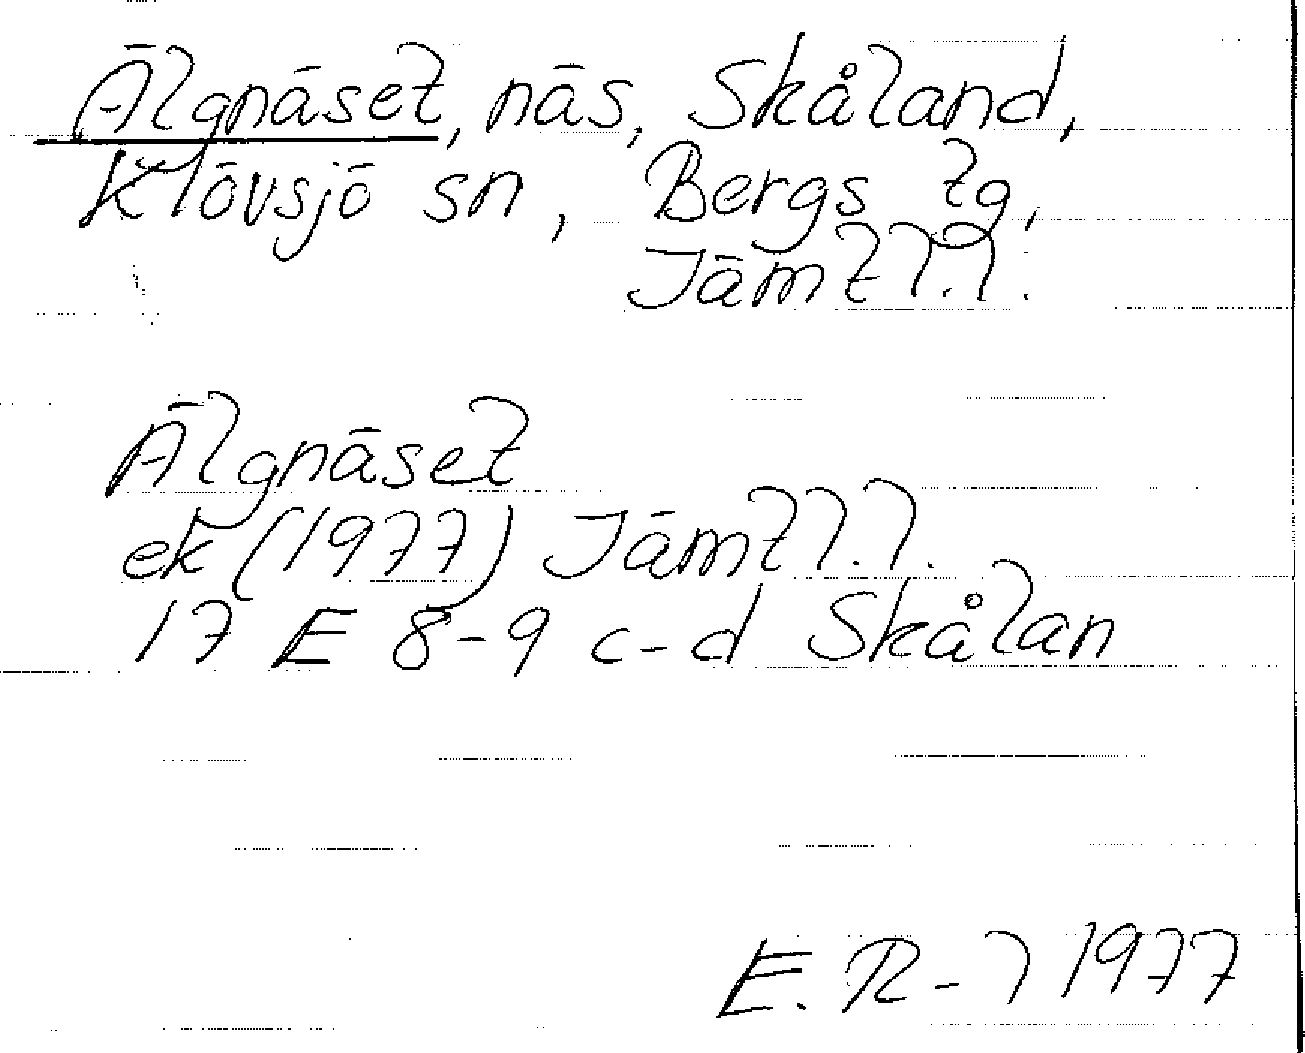 Älgnäset, näs, Skåland,
Klövsjö sn, Bergs tg,
Jämtl.l.
Älgnäset
ek (1977) Jämtl.l.
17 E 8-9 c-d Skålan
E. R-l 1977